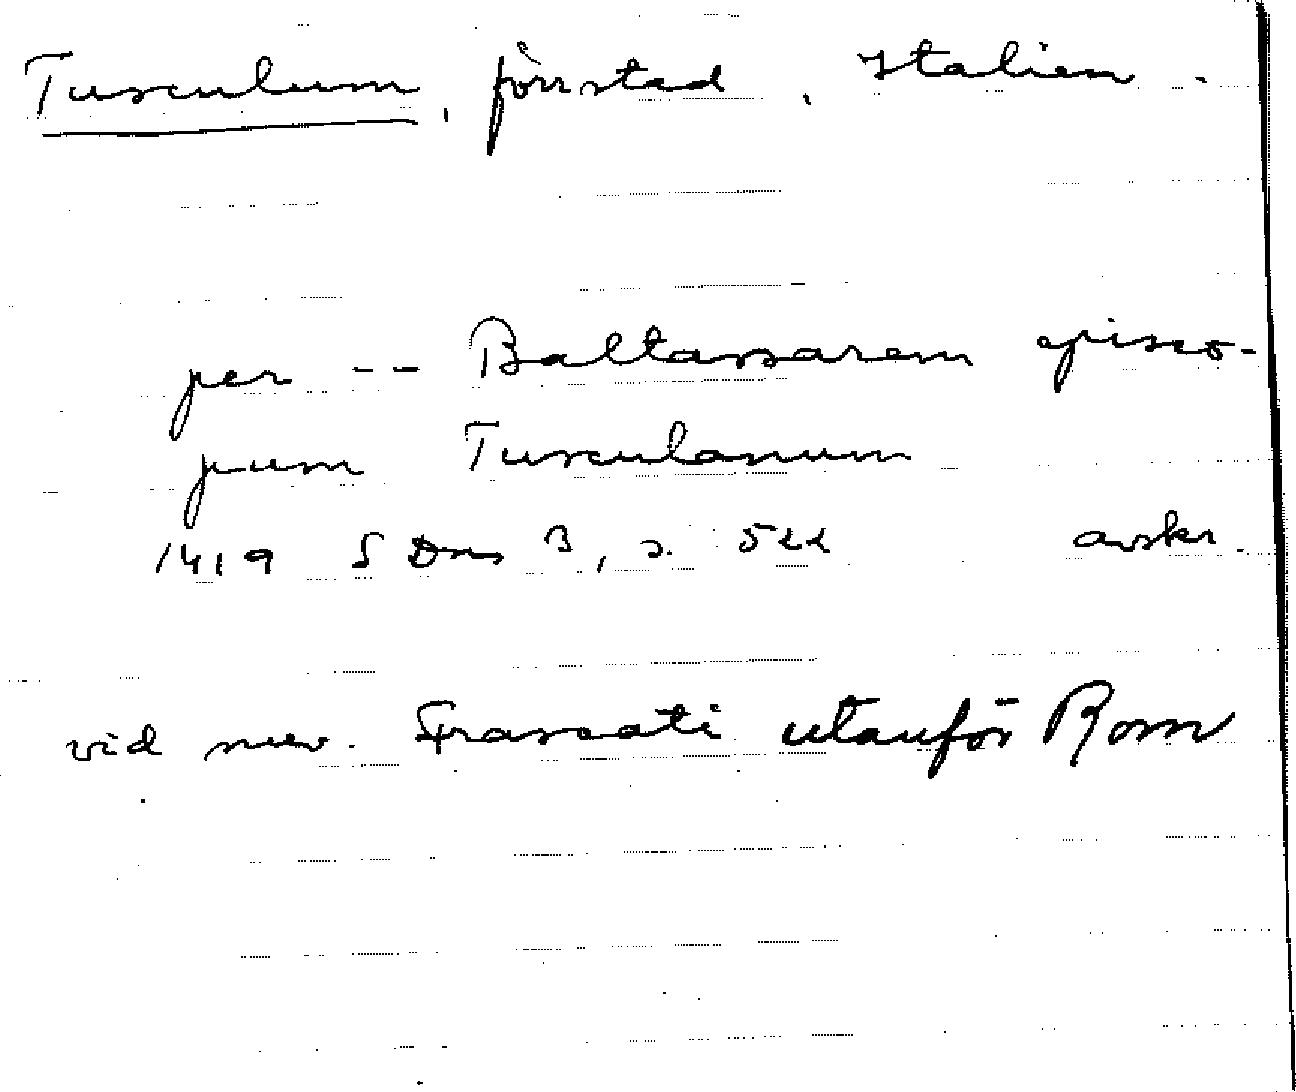 Tusculum, förrstad, Italien.
per -- Baltassarem episco-
pum Tusculanum
1419 SDns 3, s. 522 avskr.
vid nuv. Frascati utanför Rom